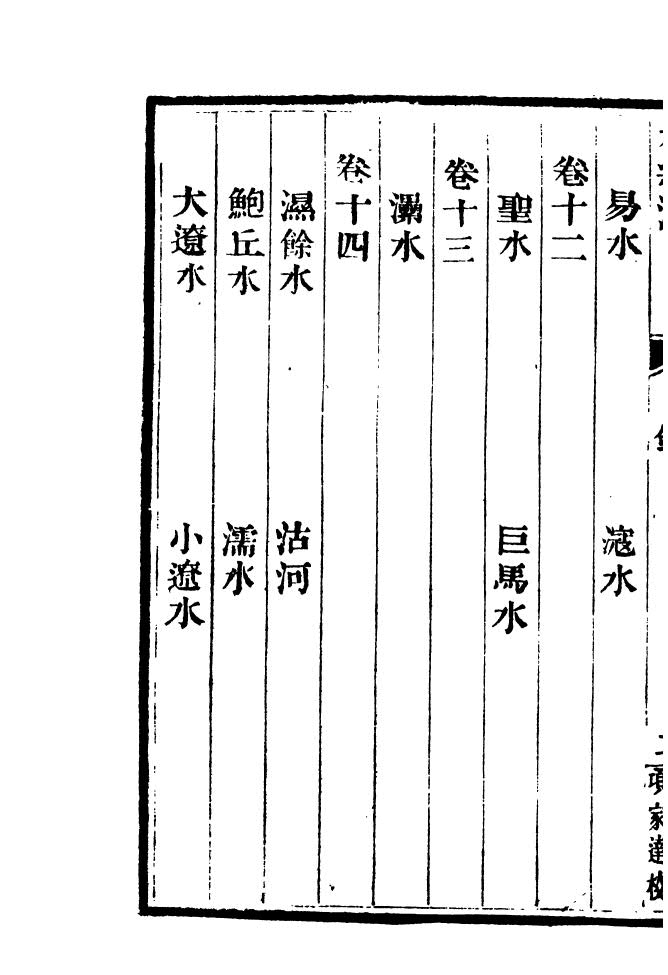 項家達校
易水 滱水
卷十二
聖水 巨馬水
卷十三
㶟水
卷十四
濕餘水 沽河
鮑丘水 濡水
大遼水 小遼水